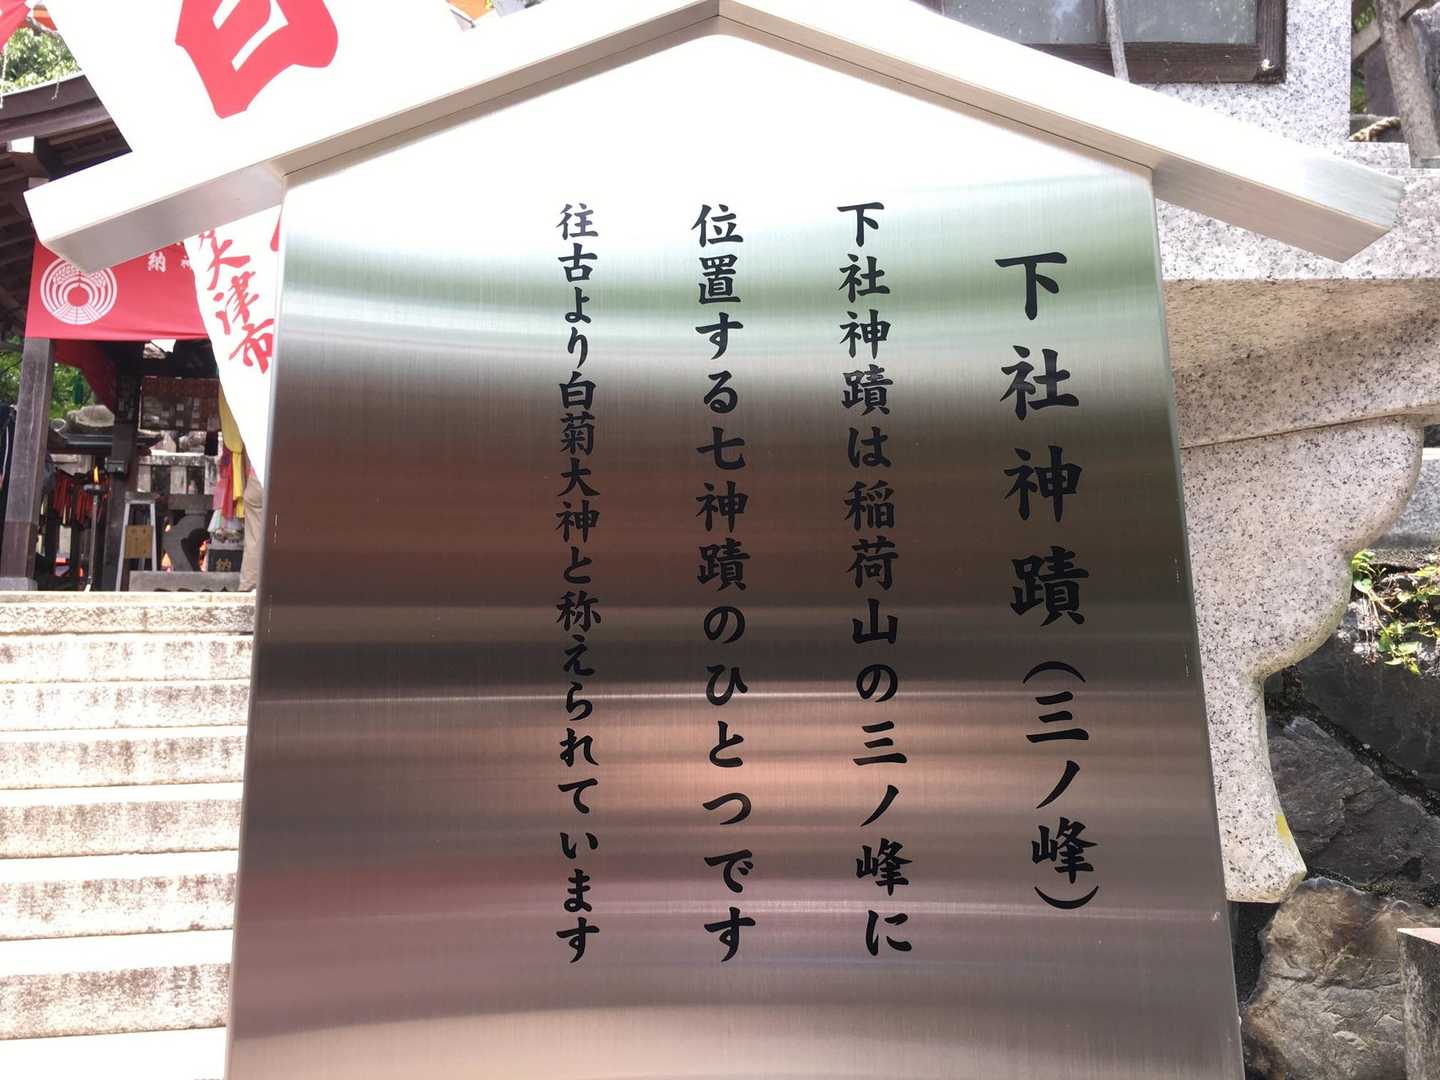 下社神蹟（三ノ峰）
下社神蹟は稲荷山の三ノ峰に
位置する七神蹟のひとつです
往古より白菊大神と称えられています
大津市
納
納